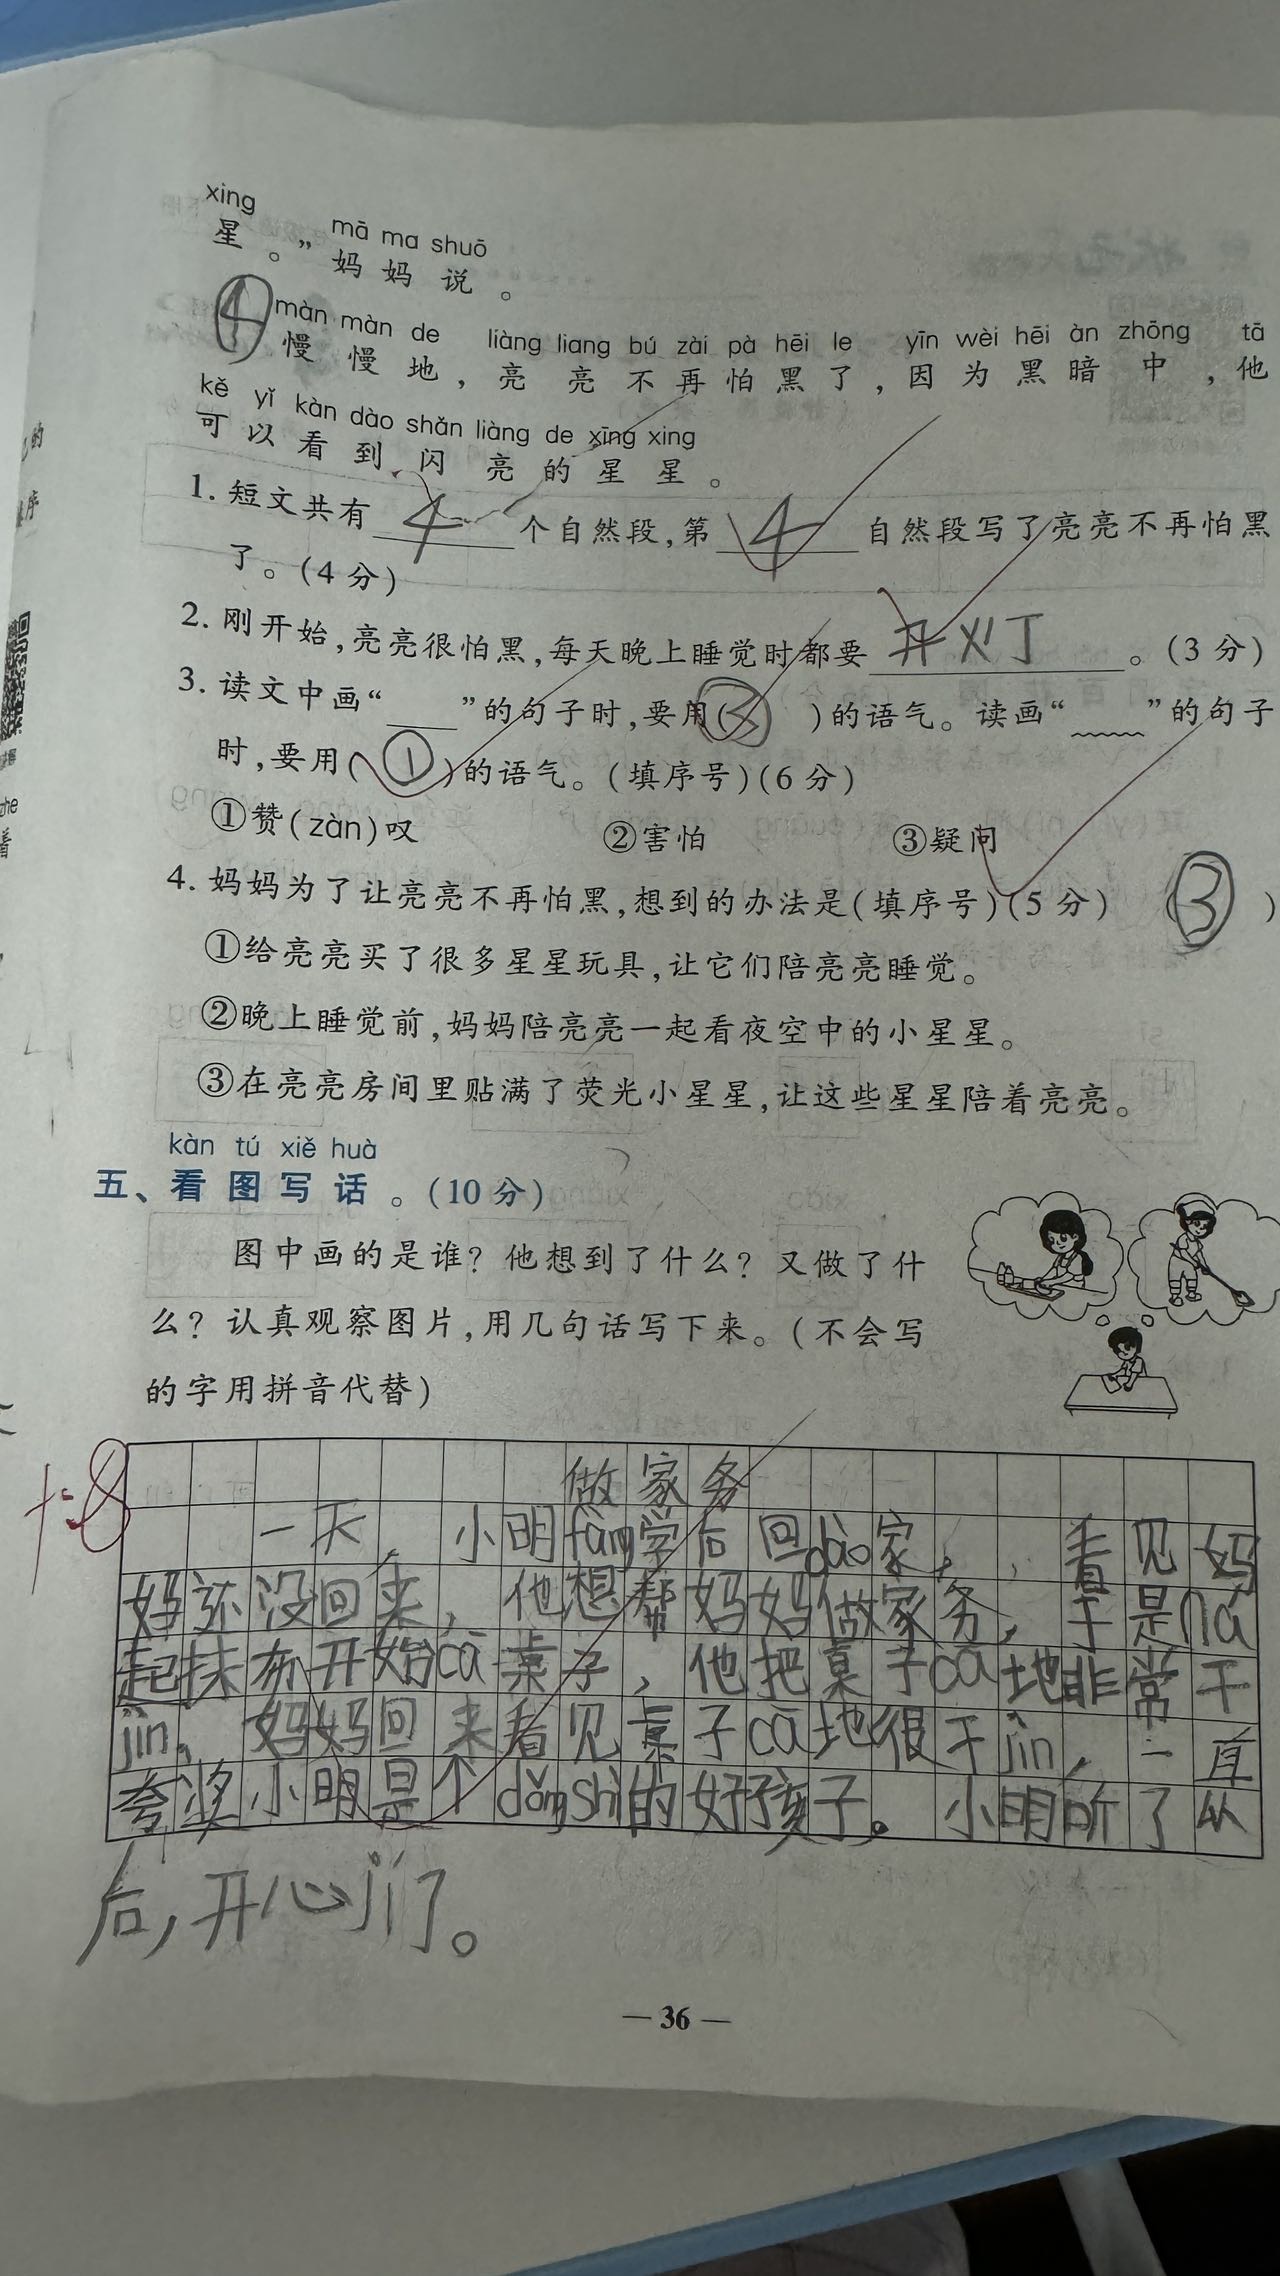 xing
星。”
mā ma shuō
妈妈说。
④
màn màn de liàng liang bú zài pà hēi le yīn wèi hēi àn zhōng tā
慢慢地,亮亮不再怕黑了,因为黑暗中,他
kě yǐ kàn dào shǎn liàng de xīng xing
可以看到闪亮的星星。
1. 短文共有 4 个自然段,第 4 自然段写了亮亮不再怕黑
了。(4分)
2. 刚开始,亮亮很怕黑,每天晚上睡觉时都要 开灯 。(3分)
3. 读文中画“____”的句子时,要用(③)的语气。读画“﹏﹏”的句子
时,要用(①)的语气。(填序号)(6分)
①赞(zàn)叹 ②害怕 ③疑问
4. 妈妈为了让亮亮不再怕黑,想到的办法是(填序号)(5分) (③)
①给亮亮买了很多星星玩具,让它们陪亮亮睡觉。
②晚上睡觉前,妈妈陪亮亮一起看夜空中的小星星。
③在亮亮房间里贴满了荧光小星星,让这些星星陪着亮亮。
kàn tú xiě huà
五、看图写话。(10分)
图中画的是谁?他想到了什么?又做了什
么?认真观察图片,用几句话写下来。(不会写
的字用拼音代替)
做家务
一天,小明fàng学后回dào家,看见妈
妈还没回来,他想帮妈妈做家务,于是ná
起抹布开始cā桌子,他把桌子cā地非常干
jìn。妈妈回来看见桌子cā地很干jìn,一直
夸奖小明是个dǒng shì的好孩子。小明听了以
后,开心jí了。
— 36 —